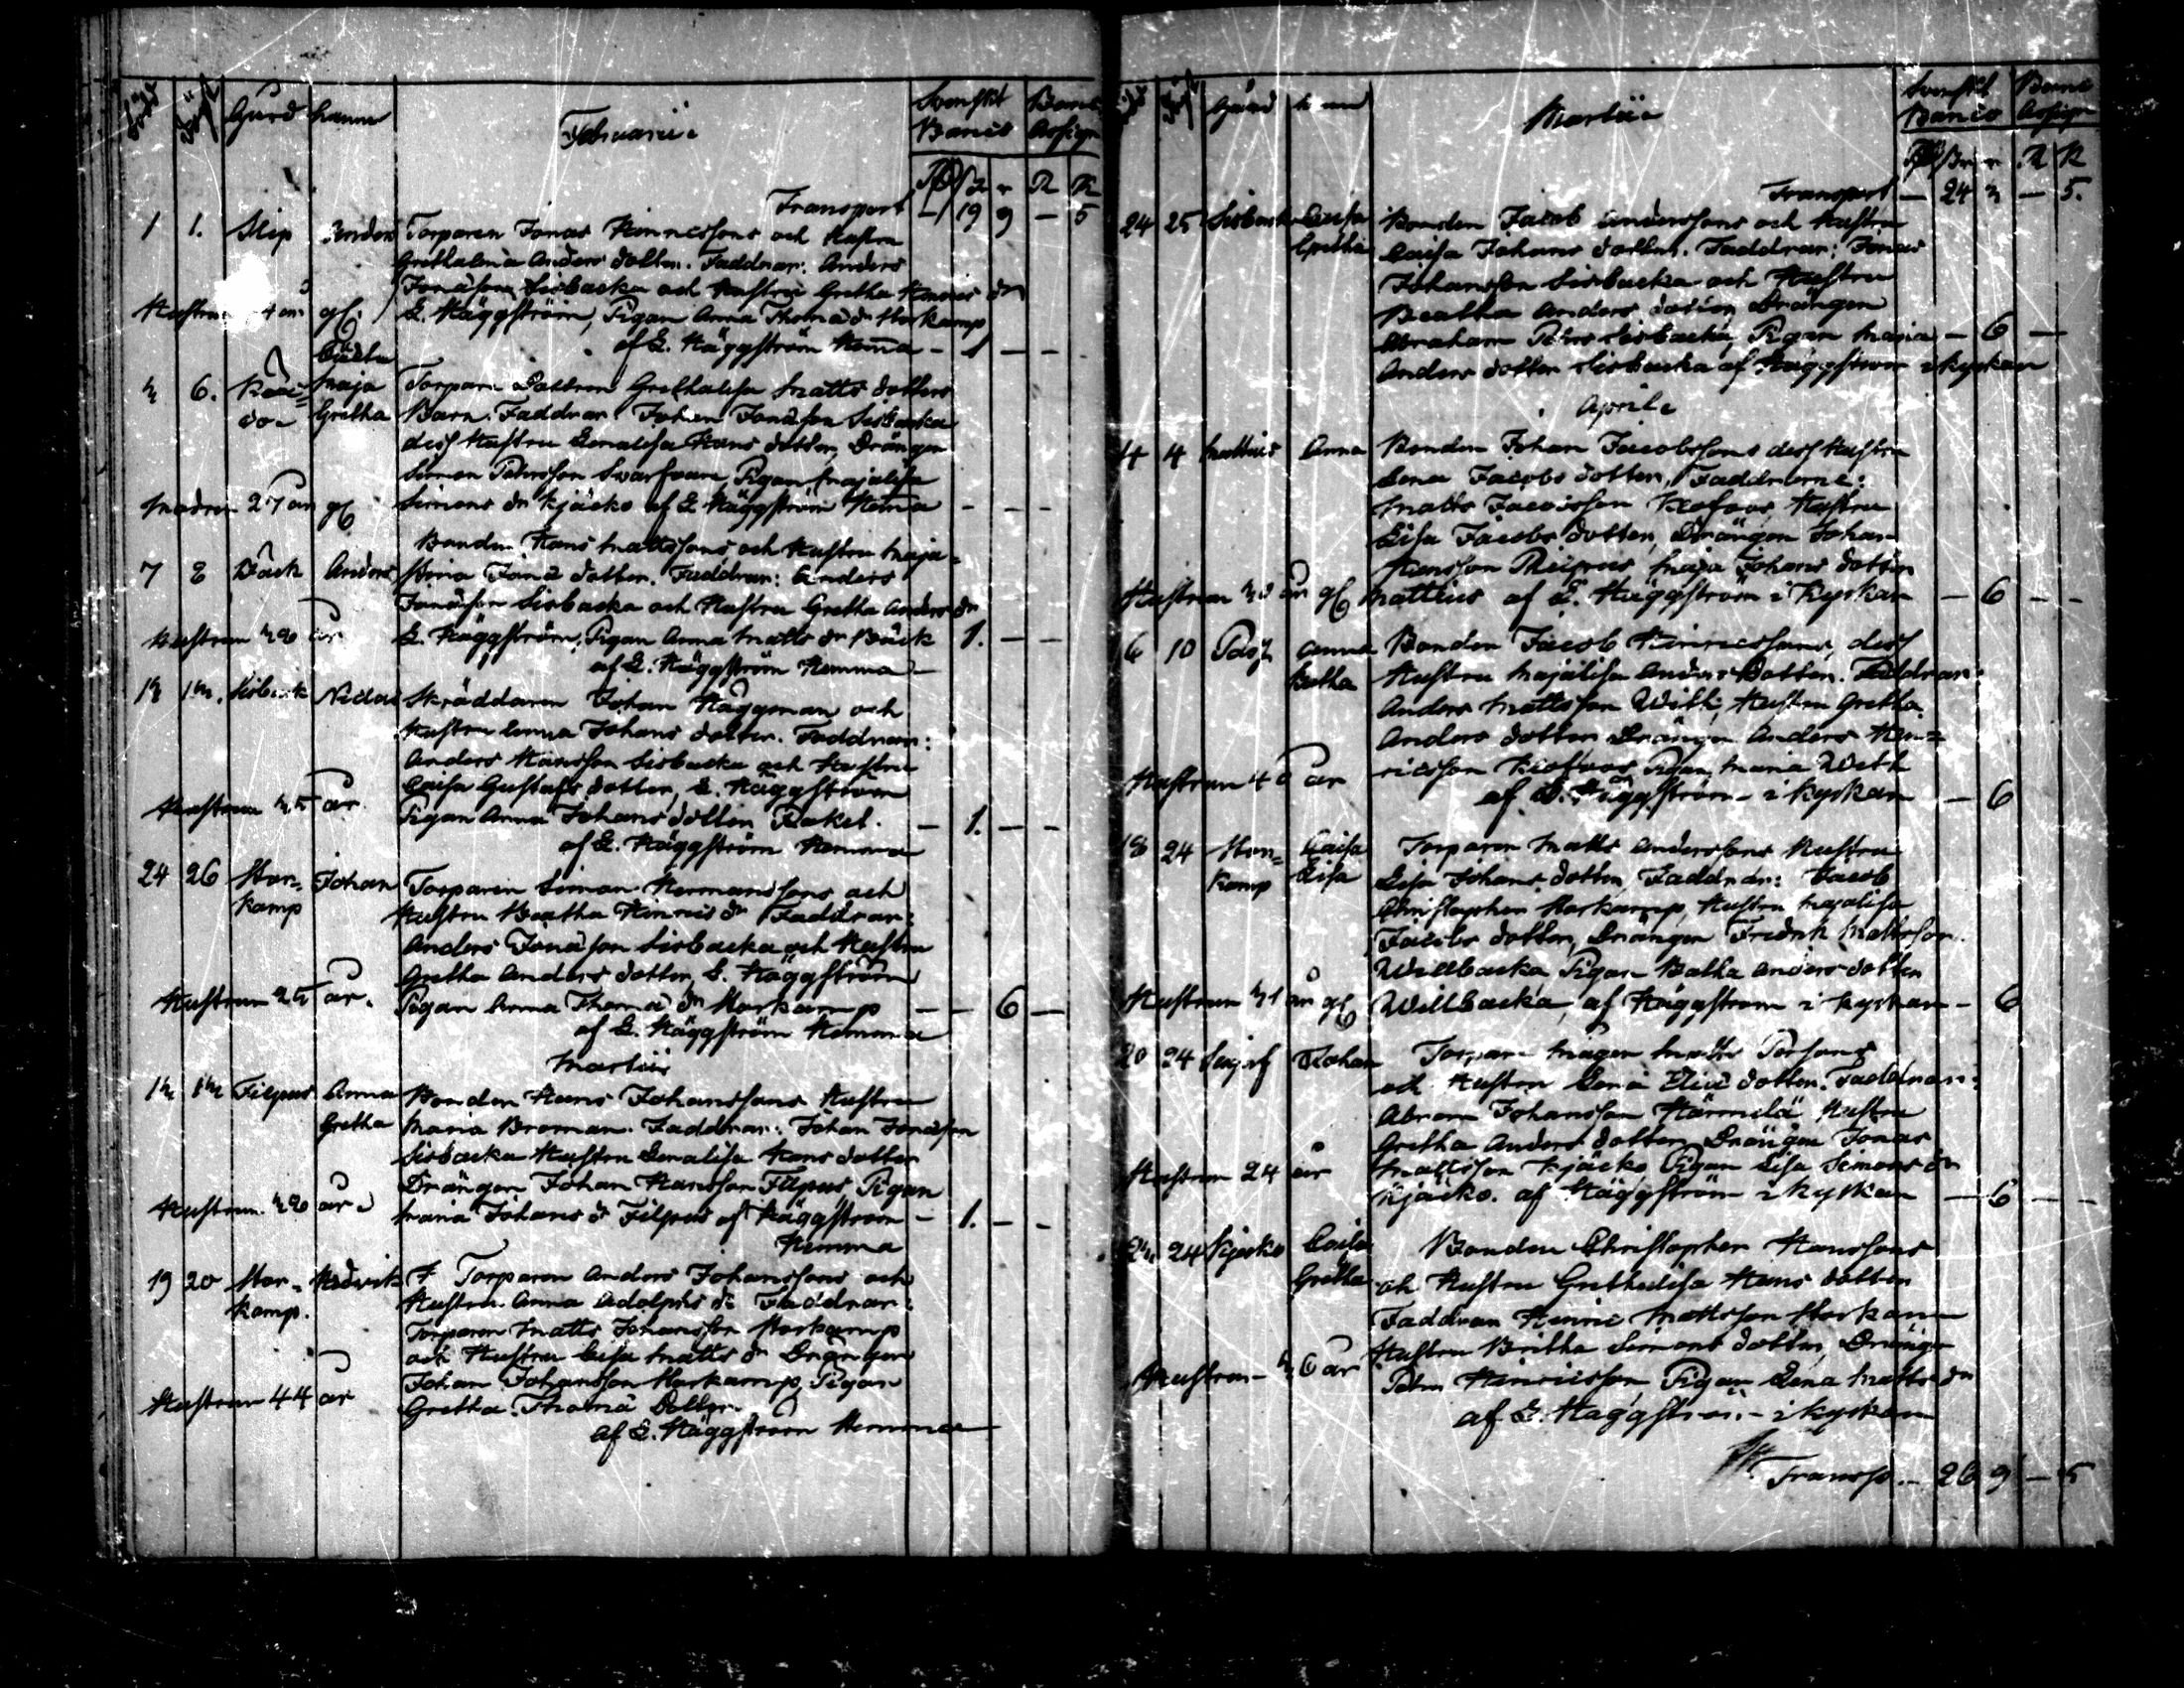 född döpt Gård Namn Februarii Svenskt Banco Banco Assign
Rd s r R K
Transport – 19 9 – 5
1 1. Slip Anders Torparen Jonas Hinricssons och Hustru
Grethalena Anders dotter. Faddrar: Anders
Jonasson Sisbacka och Hustru Gretha Anders dr
Hustrun år gl. E. Häggström, Pigan Anna Thomæ dr Storkamp
af E. Häggström Hemma – 1 – –
Oäkta
3 6. Maja Torpare Dottren Grethalisa Matts dotters
Gretha Barn. Faddrar Johan Jonasson Sisbacka
dess Hustru Lenalisa Hans dotter, Drängen
Simon Petersson Svarfvare, Pigan Majalisa
Modren 27 år gl Simons dr Kjäcko af E Häggström Hema – – –
Bonden Hans Mattssons och Hustru Maja
7 8 Bäck Anders Stina Jonæ dotter. Faddrar: Anders
Jonasson Sisbacka och Hustru Gretha Anders dr
Hustrun år E. Häggström, Pigan Anna Matts dr Bäck 1. – –
af E. Häggström Hemma –
13 13. Sisback Niclas Skräddaren Johan Häggman och
Hustru Anna Johans dotter. Faddrar:
Anders Hansson Sisbacka och Hustru
Caisa Gustafs dotter, E. Häggström
Hustrun 35 år Pigan Anna Johans dotter Rakel. – 1. – –
af E. Häggström Hemma
24 26 Stor- Johan Torparen Simon Hermanssons och
kamp Hustru Beatha Hinrics dr Faddrar:
Anders Jonasson Sisbacka och Hustru
Gretha Anders dotter, E. Häggström
Hustrun 25 år. Pigan Anna Thomæ dr Storkamp – – 6 –
af E. Häggström Hemma
Martii
13 13 Filpus Anna Bonden Hans Johanssons Hustru
Gretha Maria Broman. Faddrar: Johan Jonasson
Sisbacka Hustru Lenalisa Hans dotter
Drängen Johan Hansson Filpus Pigan
Hustrun år Maria Johans d. Filpus af Häggström – 1. – –
Hemma
19 20 Stor- Hedvik Torparen Anders Johanssons och
kamp. Hustru Anna Adolphs dr Faddrar:
Torparen Matts Johansson Storkamp
och Hustru Caisa Matts dr Drängen
Johan Johansson Storkamp, Pigan
Hustrun 44 år Gretha Thomæ Dotter.
af E. Häggström Hemma
Gård Namn Martii Svenskt Banco Banco Assign
Transport – 24 3 – 5.
24 25 Sisback Caisa Bonden Jacob Anderssons och Hustru
Gretha Caisa Johans dotter. Faddrar: Jonas
Johansson Sisbacka och Hustru
Beatha Anders dotter Drängen
Abraham Pehrs Sisbacka, Pigan Maria – 6 –
Anders dotter Sisbacka af Häggström i kyrkan
Aprill
4 4 Mattius Anna Bonden Johan Jacobssons dess Hustru
Lena Jacobs dotter, Faddrarne:
Matts Jacobsson Hustru
Lisa Jacobs dotter, Drängen Johan
Hansson Maja Johans dotter
Hustrun år gl Mattius af E. Häggström i Kyrkan – 6 – –
6 10 Anna Bonden Jacob Hinricssons, dess
Batha Hustru Majalisa Anders Dotter. Faddrar:
Anders Mattsson Wilk, Hustru Gretha
Anders dotter Drängen Anders Hen-
Hustrun 40 år ricsson Pigan Maria
af E. Häggström – i kyrkan – 6
18 24 Stor- Caisa Torparen Matts Anderssons Hustru
kamp Lisa Lisa Johans dotter, Faddrar: Jacob
Christopher Storkamp, Hustru Majalisa
Jacobs dotter, Drängen Fredrik Mattsson
Willbacka Pigan Batha Anders dotter
Hustrun 31 år gl Willbacka, af Häggström i kyrkan – 6
20 24 Johan Torpare Mågen Matts Persons
och Hustru Lena Eliæ dotter. Faddrar:
Abram Johansson Härmälä Hustru
Gretha Anders dotter Drängen Jonas
Hustrun 24 år Mattsson Kjäcko Pigan Lisa Simons dr
Kjäcko. af Häggström i kyrkan – 6 – –
24 Kjäcko Caisa Bonden Christopher Hanssons
Gretha och Hustru Grethalisa Hans dotter
Faddrar Hinric Mattsson Storkamp
Hustru Britha Simons dotter, Dränge
Hustrun 36 år Petter Hinricsson Pigan Lena Matts dr
af E. Häggström – i kyrkan
Transp. – 26 9 – 5